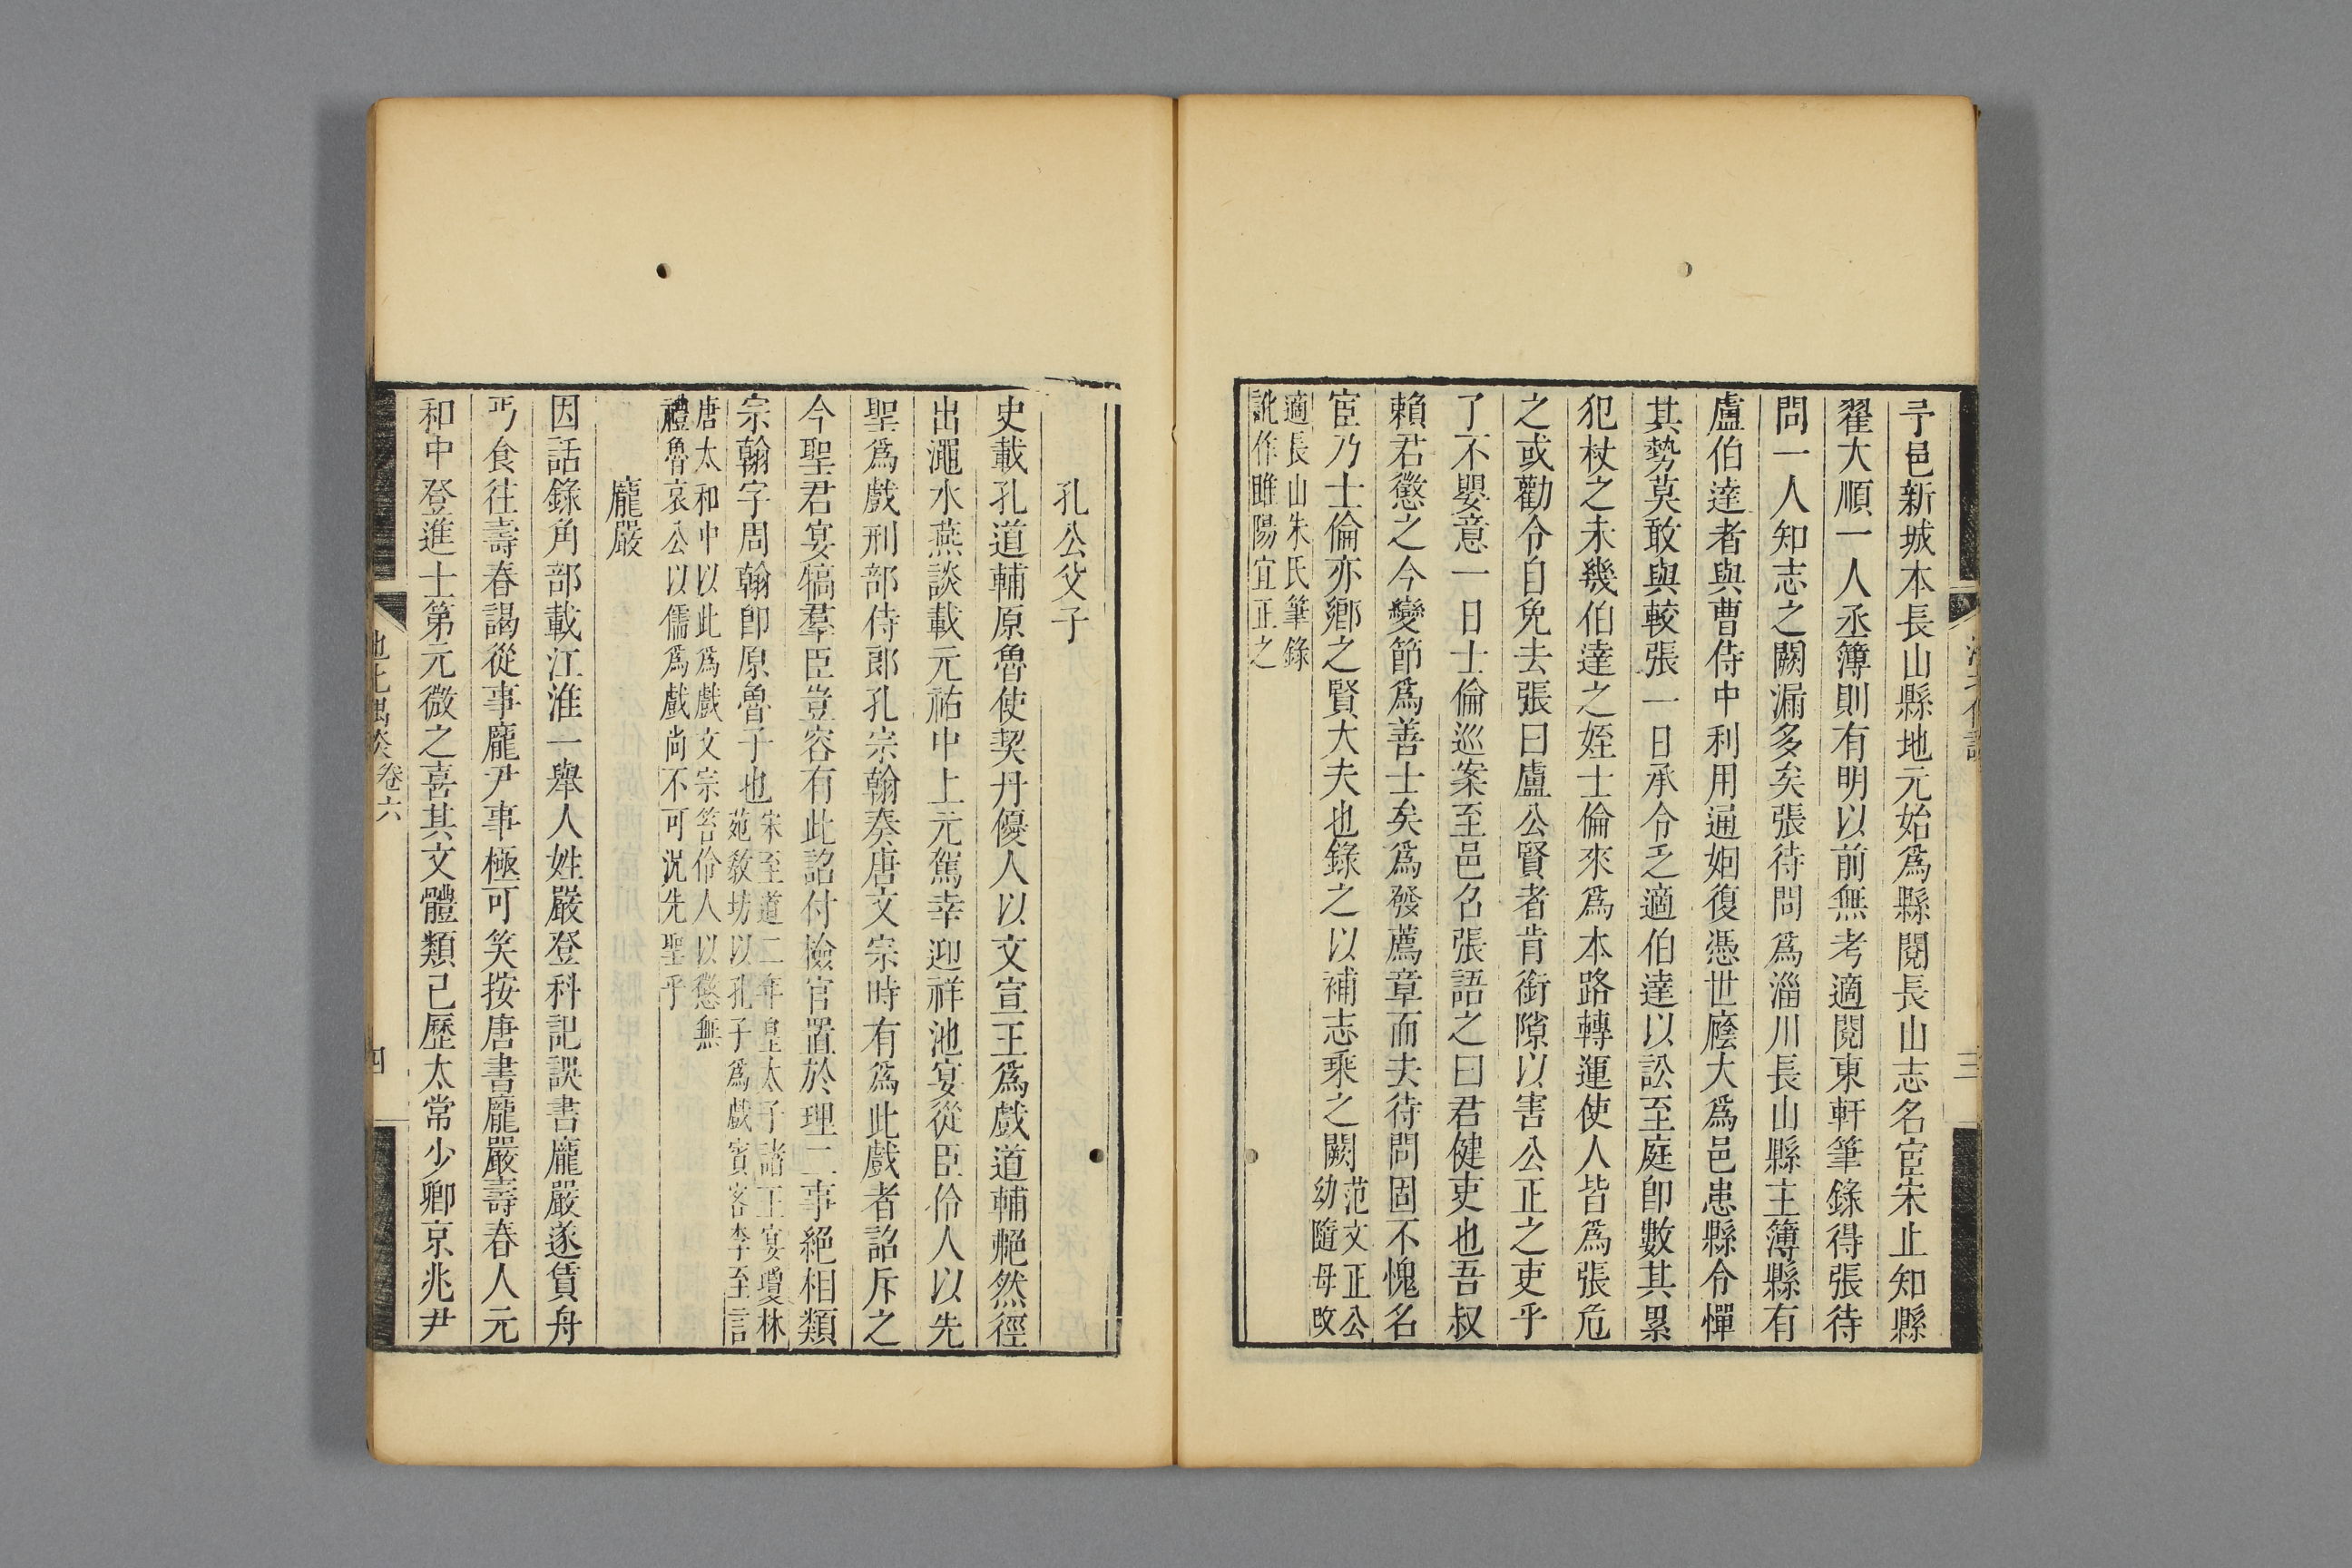 予邑新城本長山縣地元始爲縣閱長山志名宦宋止知縣
翟大順一人丞簿則有明以前無考適閱東軒筆錄得張待
問一人知志之闕漏多矣張待問爲淄川長山縣主簿縣有
盧伯達者與曹侍中利用通姻復憑世廕大爲邑患縣令憚
其勢莫敢與較張一日承令乏適伯達以訟至庭卽數其累
犯杖之未幾伯達之姪士倫來爲本路轉運使人皆爲張危
之或勸令自免去張曰盧公賢者肯銜隙以害公正之吏乎
了不嬰意一日士倫巡案至邑召張語之曰君健吏也吾叔
賴君懲之今變節爲善士矣爲發薦章而去待問固不愧名
宦乃士倫亦鄉之賢大夫也錄之以補志乘之闕范文正公
幼隨母改
適長山朱氏筆錄
訛作睢陽宜正之
三
孔公父子
史載孔道輔原魯使契丹優人以文宣王爲戲道輔艴然徑
出澠水燕談載元祐中上元駕幸迎祥池宴從臣伶人以先
聖爲戲刑部侍郎孔宗翰奏唐文宗時有爲此戲者詔斥之
今聖君宴犒羣臣豈容有此詔付檢官置於理二事絕相類
宗翰字周翰卽原魯子也宋至道二年皇太子諸王宴瓊林
苑敎坊以孔子爲戲賓客李至言
唐太和中以此爲戲文宗笞伶人以懲無
禮魯哀公以儒爲戲尚不可況先聖乎
龐嚴
因話錄角部載江淮一舉人姓嚴登科記誤書龐嚴遂賃舟
丐食往壽春謁從事龐尹事極可笑按唐書龐嚴壽春人元
和中登進士第元微之喜其文體類己歷太常少卿京兆尹
池北偶談卷六
四